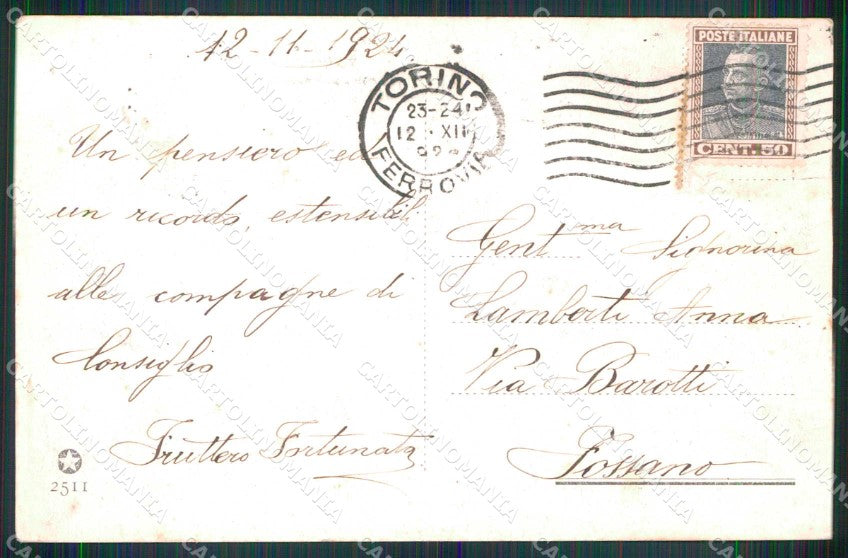 12-11-1924
TORINO
23-24
12 · XII
FERROVIA
POSTE ITALIANE
CENT. 50
Un pensiero ed
un ricordo, estensibil
alle compagne di
Consiglio
Fruttero Fortunata
Gent ma Signorina
Lamberti Anna
Via Barotti
Fossano
2511
CARTOLINOMANIA